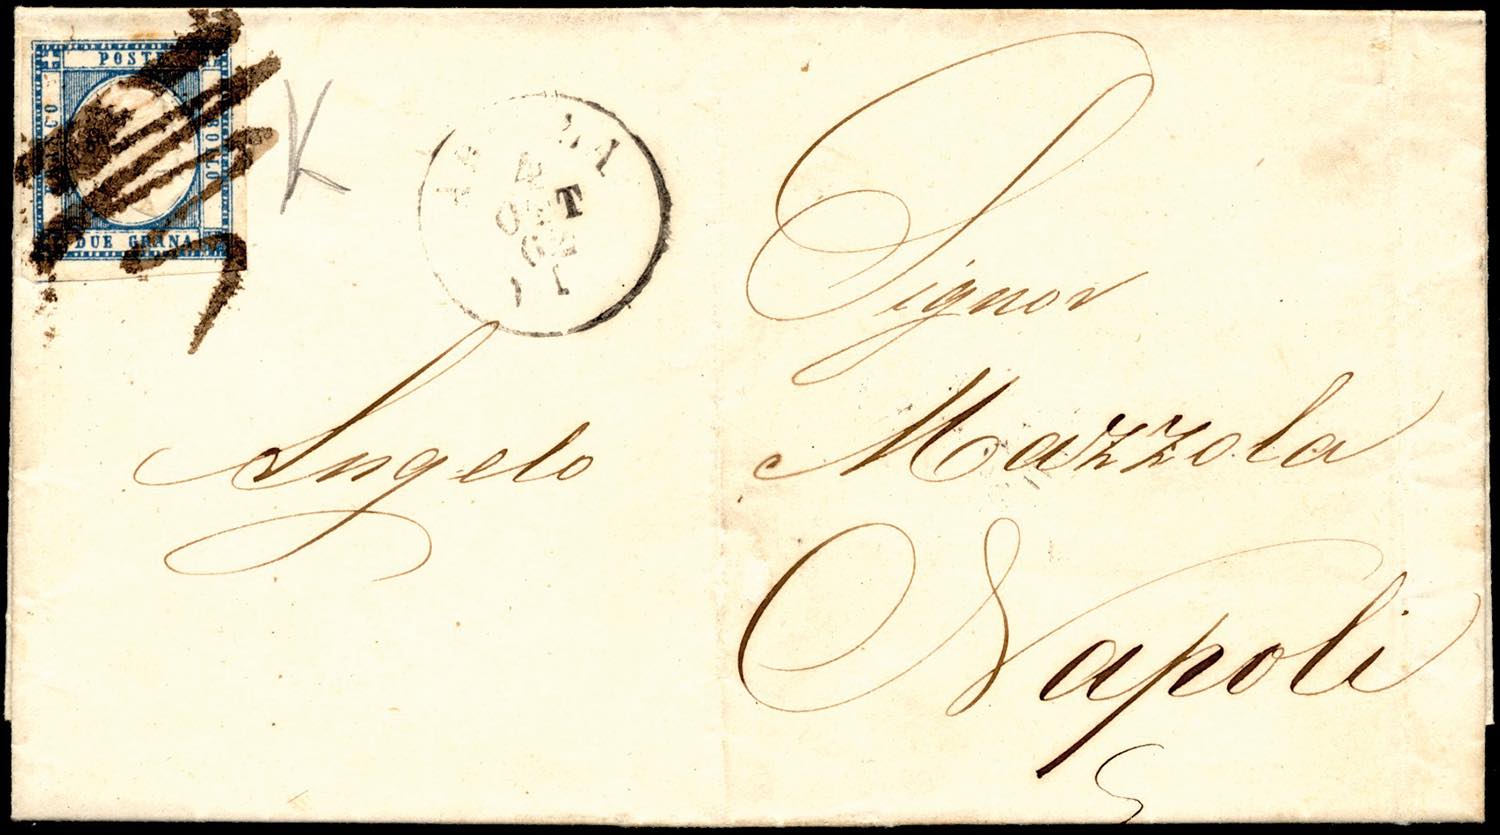 POSTE
FRANCO
BOLLO
DUE GRANA
K
4
OTT
62
Signor
Angelo
Mazzola
Napoli